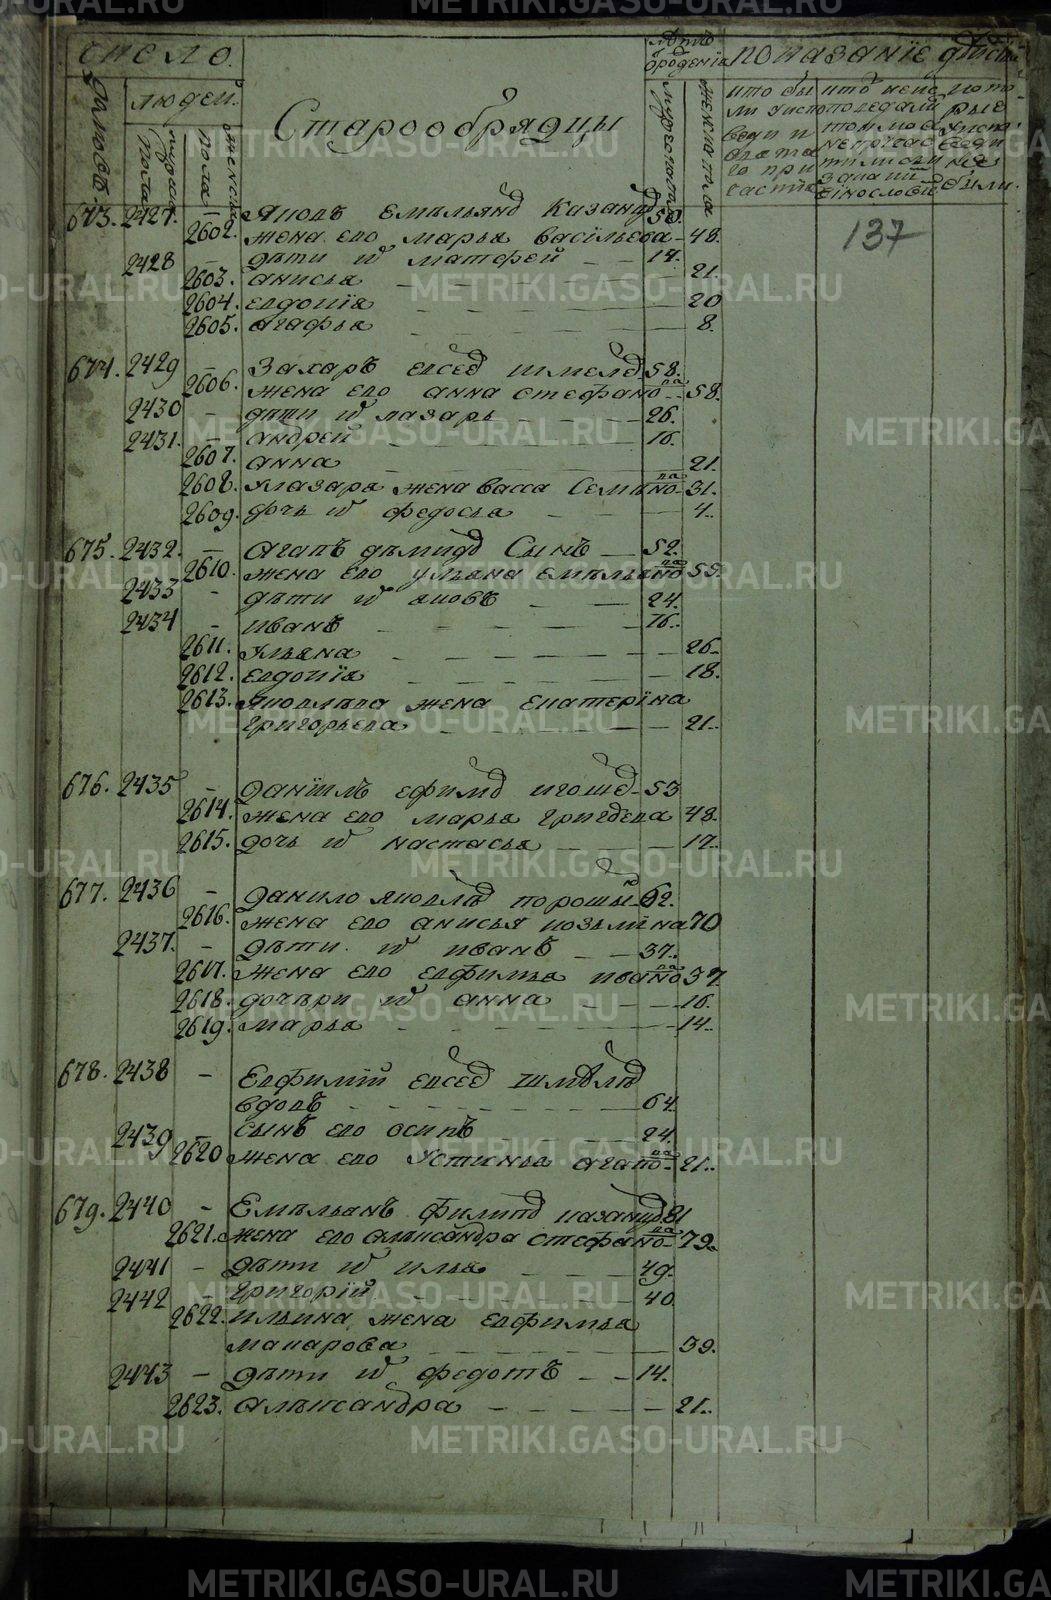 METRIKI.GASO-URAL.RU
число.
дворовъ
людей.
мужска пола
женска пола
Старообрядцы
лѣта ѿ рожденїя
мужеска
женска пола
показанїе
137
673. 2427. – Яковъ Емельяновъ Казанц 50.
2602. жена ево марья васїльева – 48.
2428 – дѣти ѿ матфей – 14.
2603. анисья – 21.
2604. евдокїа – 20
2605. агафья – 8.
674. 2429 – Захаръ евсеѳ шмелев 58.
2606. жена ево анна стефанова – 58.
2430 – дѣти ѿ лазарь – 26.
2431. – андрей – 16.
2607. анна – 21.
2608. у лазаря жена васса Семенова – 31.
2609. дочь ѿ федосья – 4.
675. 2432. – Агапъ демидов Сынъ – 52.
2610. жена ево ульяна емельянова 55.
2433 – дѣти ѿ яковъ – 24.
2434 – иванъ – 16.
2611. ульяна – 26.
2612. евдокїа – 18.
2613. яковлева жена екатерїна
григорьева – 21.
676. 2435 – данїилъ ефимов игошев – 53
2614. жена ево марья григорьева 48.
2615. дочь ѿ настасья – 17.
677. 2436 – данило яковлев порошин 62.
2616. жена ево анисья козьмїна 70
2437. – дѣти ѿ иванъ – 37.
2617. жена ево евфимья иванова 37
2618. дочери ѿ анна – 16.
2619. марья – 14.
678. 2438 – Евфимїй евсев шмелев
вдовъ – 64.
2439 – сынъ ево осипъ – 24.
2620 жена ево Устинья агапова – 21.
679. 2440 – Емельянъ филипов казанц 81
2621. жена ево александра стефанова – 79.
2441 – дѣти ѿ илья – 49.
2442 – григорїй – 40
2622. ильина жена евфимья
макарова – 39.
2443 – дѣти ѿ федотъ – 14.
2623. александра – 21.
METRIKI.GASO-URAL.RU